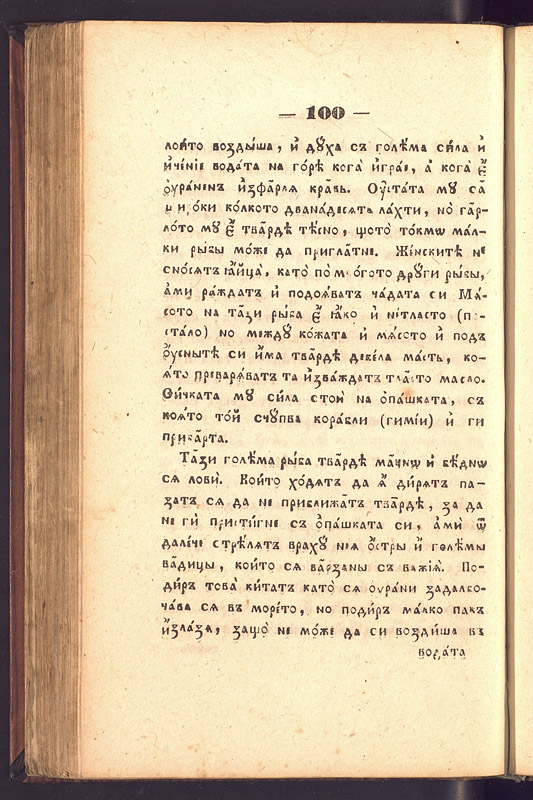 — 100 —
лои́то воздыша, и҆ дꙋ́ха съ голѣ́ма си́ла и҆
и҆че́нїе вода́та на го́рѣ кога̀ и҆гра́е, а҆ кога̀ є҆̀
ѹ҆ра́ненъ и҆зфа̄рлѧ кра̄вь. Оу҆ста́та мꙋ са̄
ко́лкото двана́десѧть ла́хти, но̀ га̄р-
ло́то мꙋ є҆̀ тва̄рдѣ тѣ́сно, щото̀ то́кмѡ ма́л-
ки ры́бы мо́же да пригла̄тне. Же́нскитѣ не
сно́сѧтъ ꙗ҆йца̀, като̀ по мⸯногото дрꙋ́ги ры́бы,
а҆́ми ра́ждатъ и҆ подоѧ́ватъ ча́дата си Мѧ́-
сото на та́зи ры́ба є҆̀ ꙗ҆́ко и҆ не́тласто (по-
ста́ло) но междꙋ̀ ко́жата и҆ мѧ́сото и҆ подъ
ѹ҆́снытѣ си и҆́ма тва̄рдѣ дебе́ла ма́сть, ко-
ѧ́то преварѧ́ватъ та и҆зва́ждатъ тла́сто масло.
Си́чката мꙋ си́ла стои̂ на ѻ҆па́шката, съ
коѧ́то то́й счꙋ́пва кора́бли (гими́и) и҆ ги
прика̄рта.
Та́зи голѣ́ма ры́ба тва̄рдѣ ма̄чнѡ и҆ бѣ́днѡ
сѧ лови̂. Кои́то хо́дѧтъ да ѧ҆̀ ди́рѧтъ па-
затъ сѧ да не приближа̄тъ тва̄рдѣ, за да
не ги̂ присти́гне съ ѻ҆па́шката си, а҆́ми ѿ
дале́че стрѣ́лѧтъ врахꙋ̀ неѧ ѻ҆́стры и҆ голѣ́мы
ва̄дицы, кои́то сѧ ва̄рзаны съ ва̄жїѧ̀. По-
ди́ръ това̀ ки́татъ като̀ сѧ ѹра́ни задалбо-
ча́ва сѧ въ море́то, но поди́ръ ма́лко пакъ
и҆зла́зѧ, защо̀ не мо́же да си возди́ша въ
вода́та